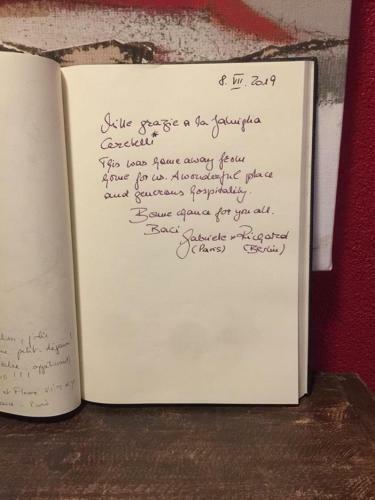 8. VII. 2019
Mille grazie a la famiglia
Cerelelli*
This was home away from
home for us. A wonderful place
and generous hospitality.
Bonne chance for you all.
Baci
Gabriele + Richard
(Paris) (Berlin)
petit
et Fleore
Paris